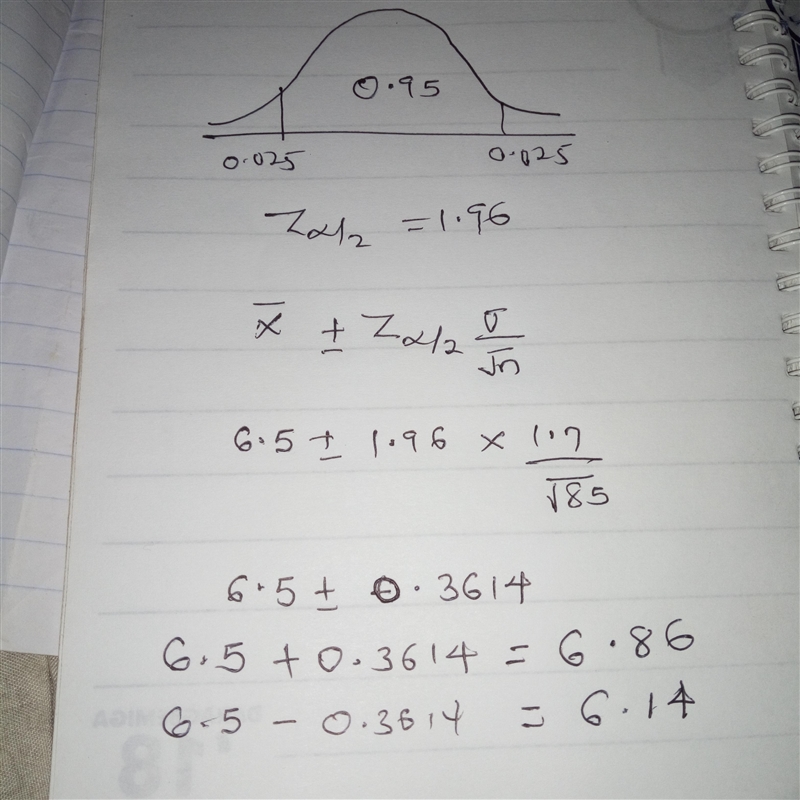 0.95
0.025 0.025
Zα/2 = 1.96
x̄ ± Zα/2 σ/√n
6.5 ± 1.96 × 1.7/√85
6.5 ± 0.3614
6.5 + 0.3614 = 6.86
6.5 - 0.3614 = 6.14